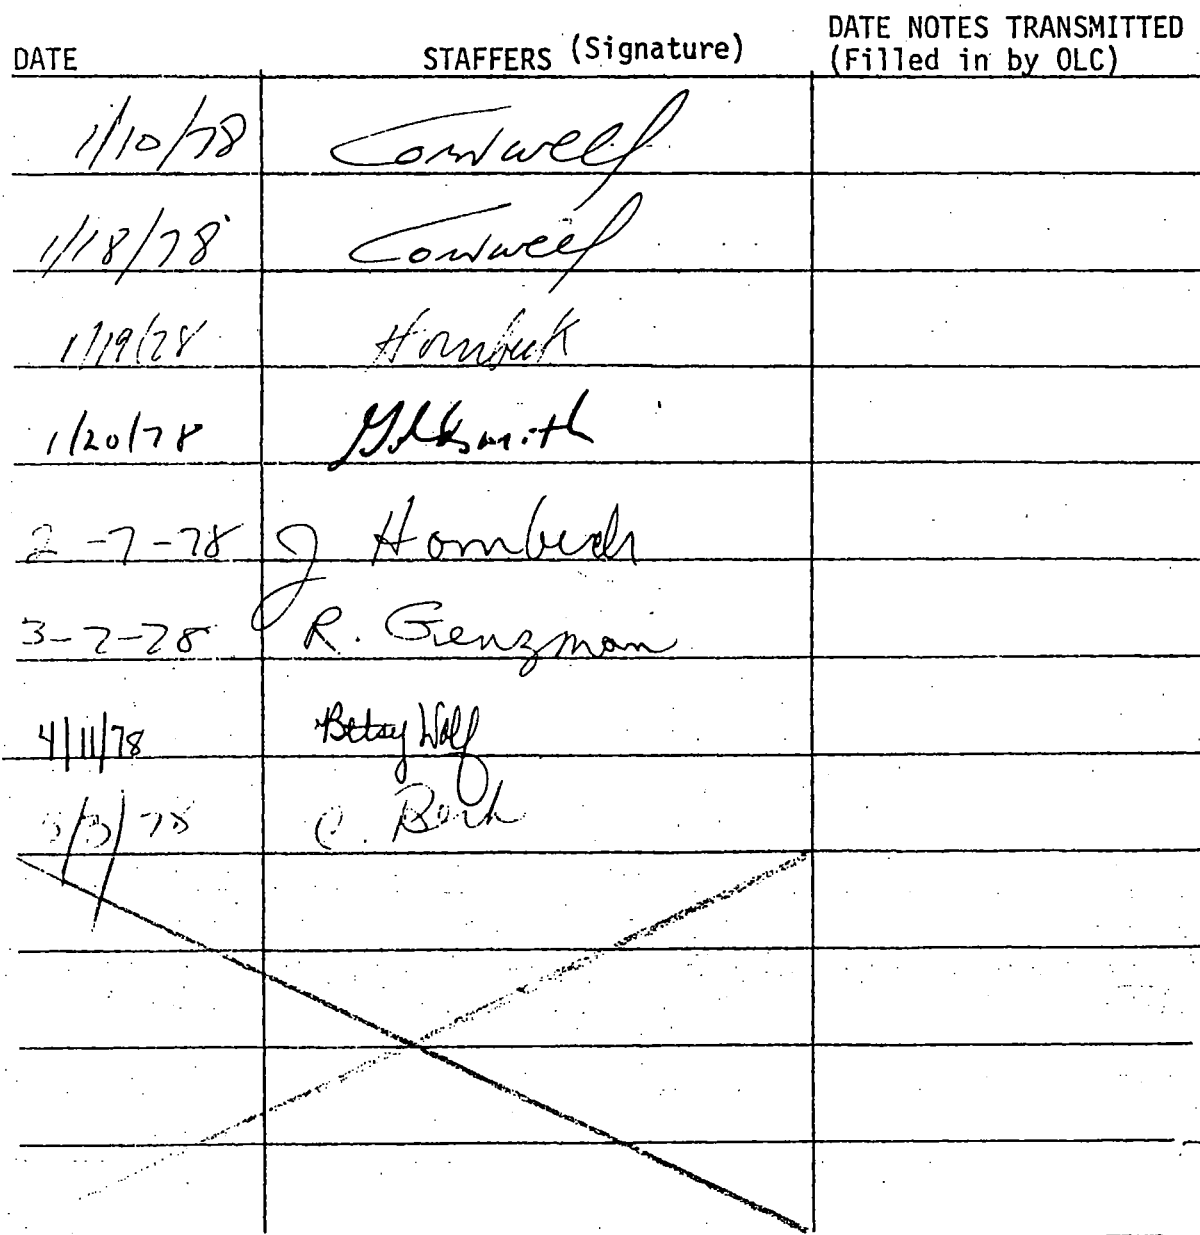 DATE STAFFERS (Signature) DATE NOTES TRANSMITTED
(Filled in by OLC)
1/10/78 Cornwell
1/18/78 Cornwell
1/19/78 Hornbeck
1/20/78 Goldsmith
2-7-78 J Hornbeck
3-2-78 R. Genzman
4/11/78 Betsy Wolf
5/3/78 C. Berk